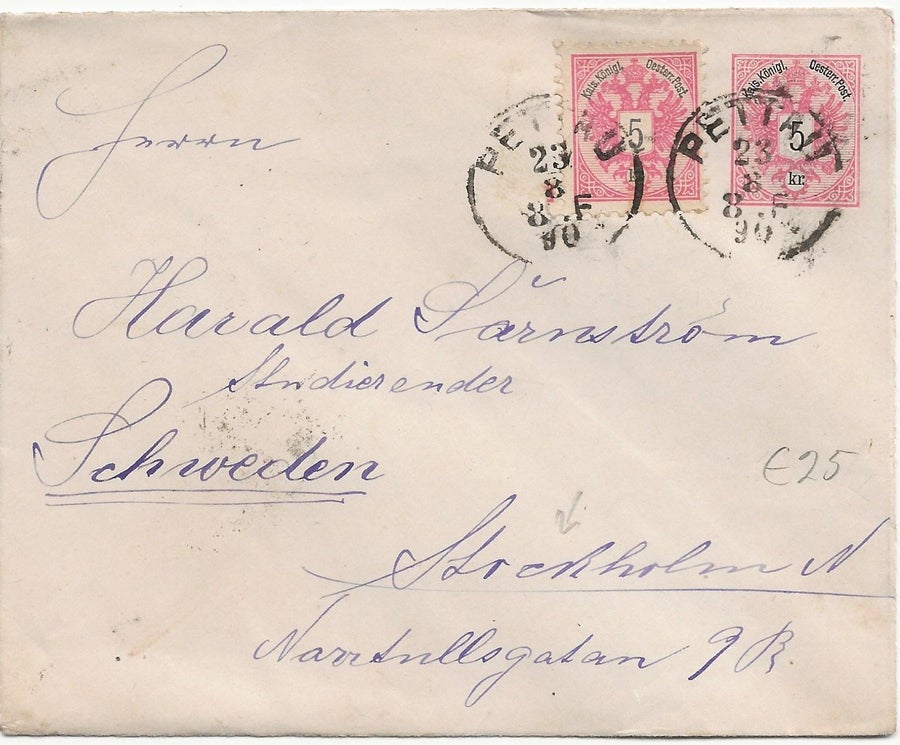 Kais. Königl. Oesterr. Post.
5
Kais. Königl. Oesterr. Post.
5 kr.
PETTAU
23
8
8.F
90
PETTAU
23
8
8.F
90
Herrn
Harald Särnström
Studierender
Schweden
€25
Stockholm N
Norrtullsgatan 9 B.